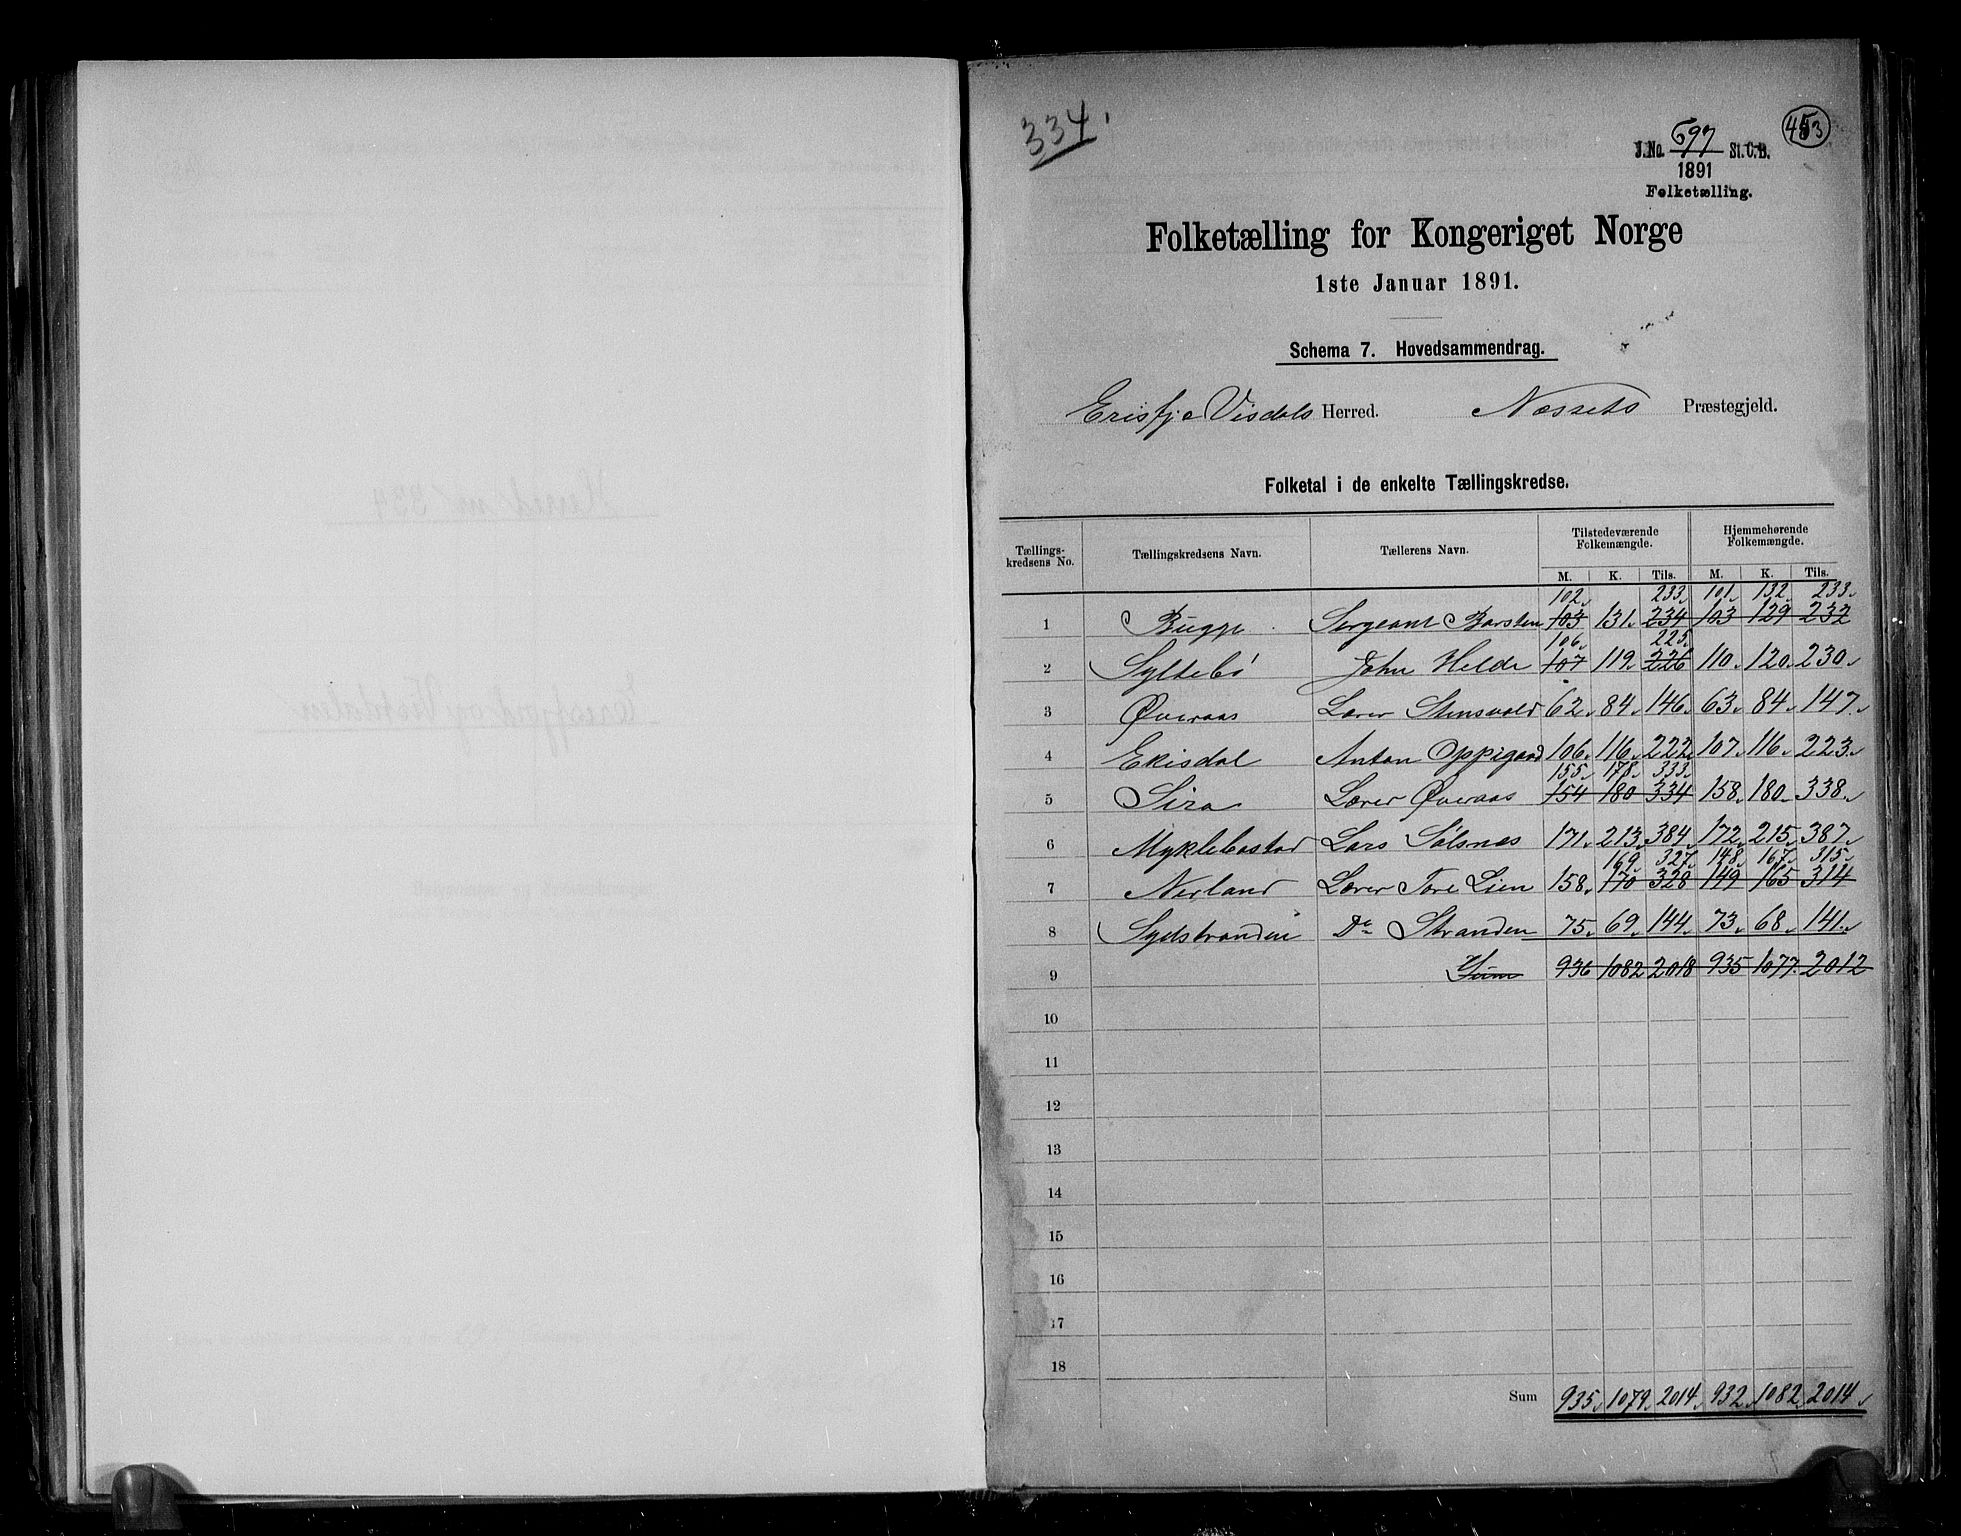 334.
453
J.No. 597 St.C.B.
1891
Folketælling.
Folketælling for Kongeriget Norge
1ste Januar 1891.
Schema 7. Hovedsammendrag.
Erisfj o Visdals Herred. Næssets Præstegjeld.
Folketal i de enkelte Tællingskredse.
Tællings-kredsens No. Tællingskredsens Navn. Tællerens Navn. Tilstedeværende Folkemængde. Hjemmehørende Folkemængde.
M. K. Tils. M. K. Tils.
102 233 101 132 233
1 Bugge Sergeant Barsten 103 131 234 103 129 232
106 225
2 Syltebö John Helde 107 119 226 110 120 230
3 Øveraas Lærer Stensvold 62 84 146 63 84 147
4 Ekisdal Anton Oppigaard 106 116 222 107 116 223
155 178 333
5 Sira Lærer Øveraas 154 180 334 158 180 338
6 Myklebostad Lars Sølsnæs 171 213 384 172 215 387
169 327 148 167 315
7 Nerland Lærer Tore Lien 158 170 328 149 165 314
8 Sydstranden Do Stranden 75 69 144 73 68 141
9 Sum 936 1082 2018 935 1077 2012
10
11
12
13
14
15
16
17
18
Sum 935 1079 2014 932 1082 2014